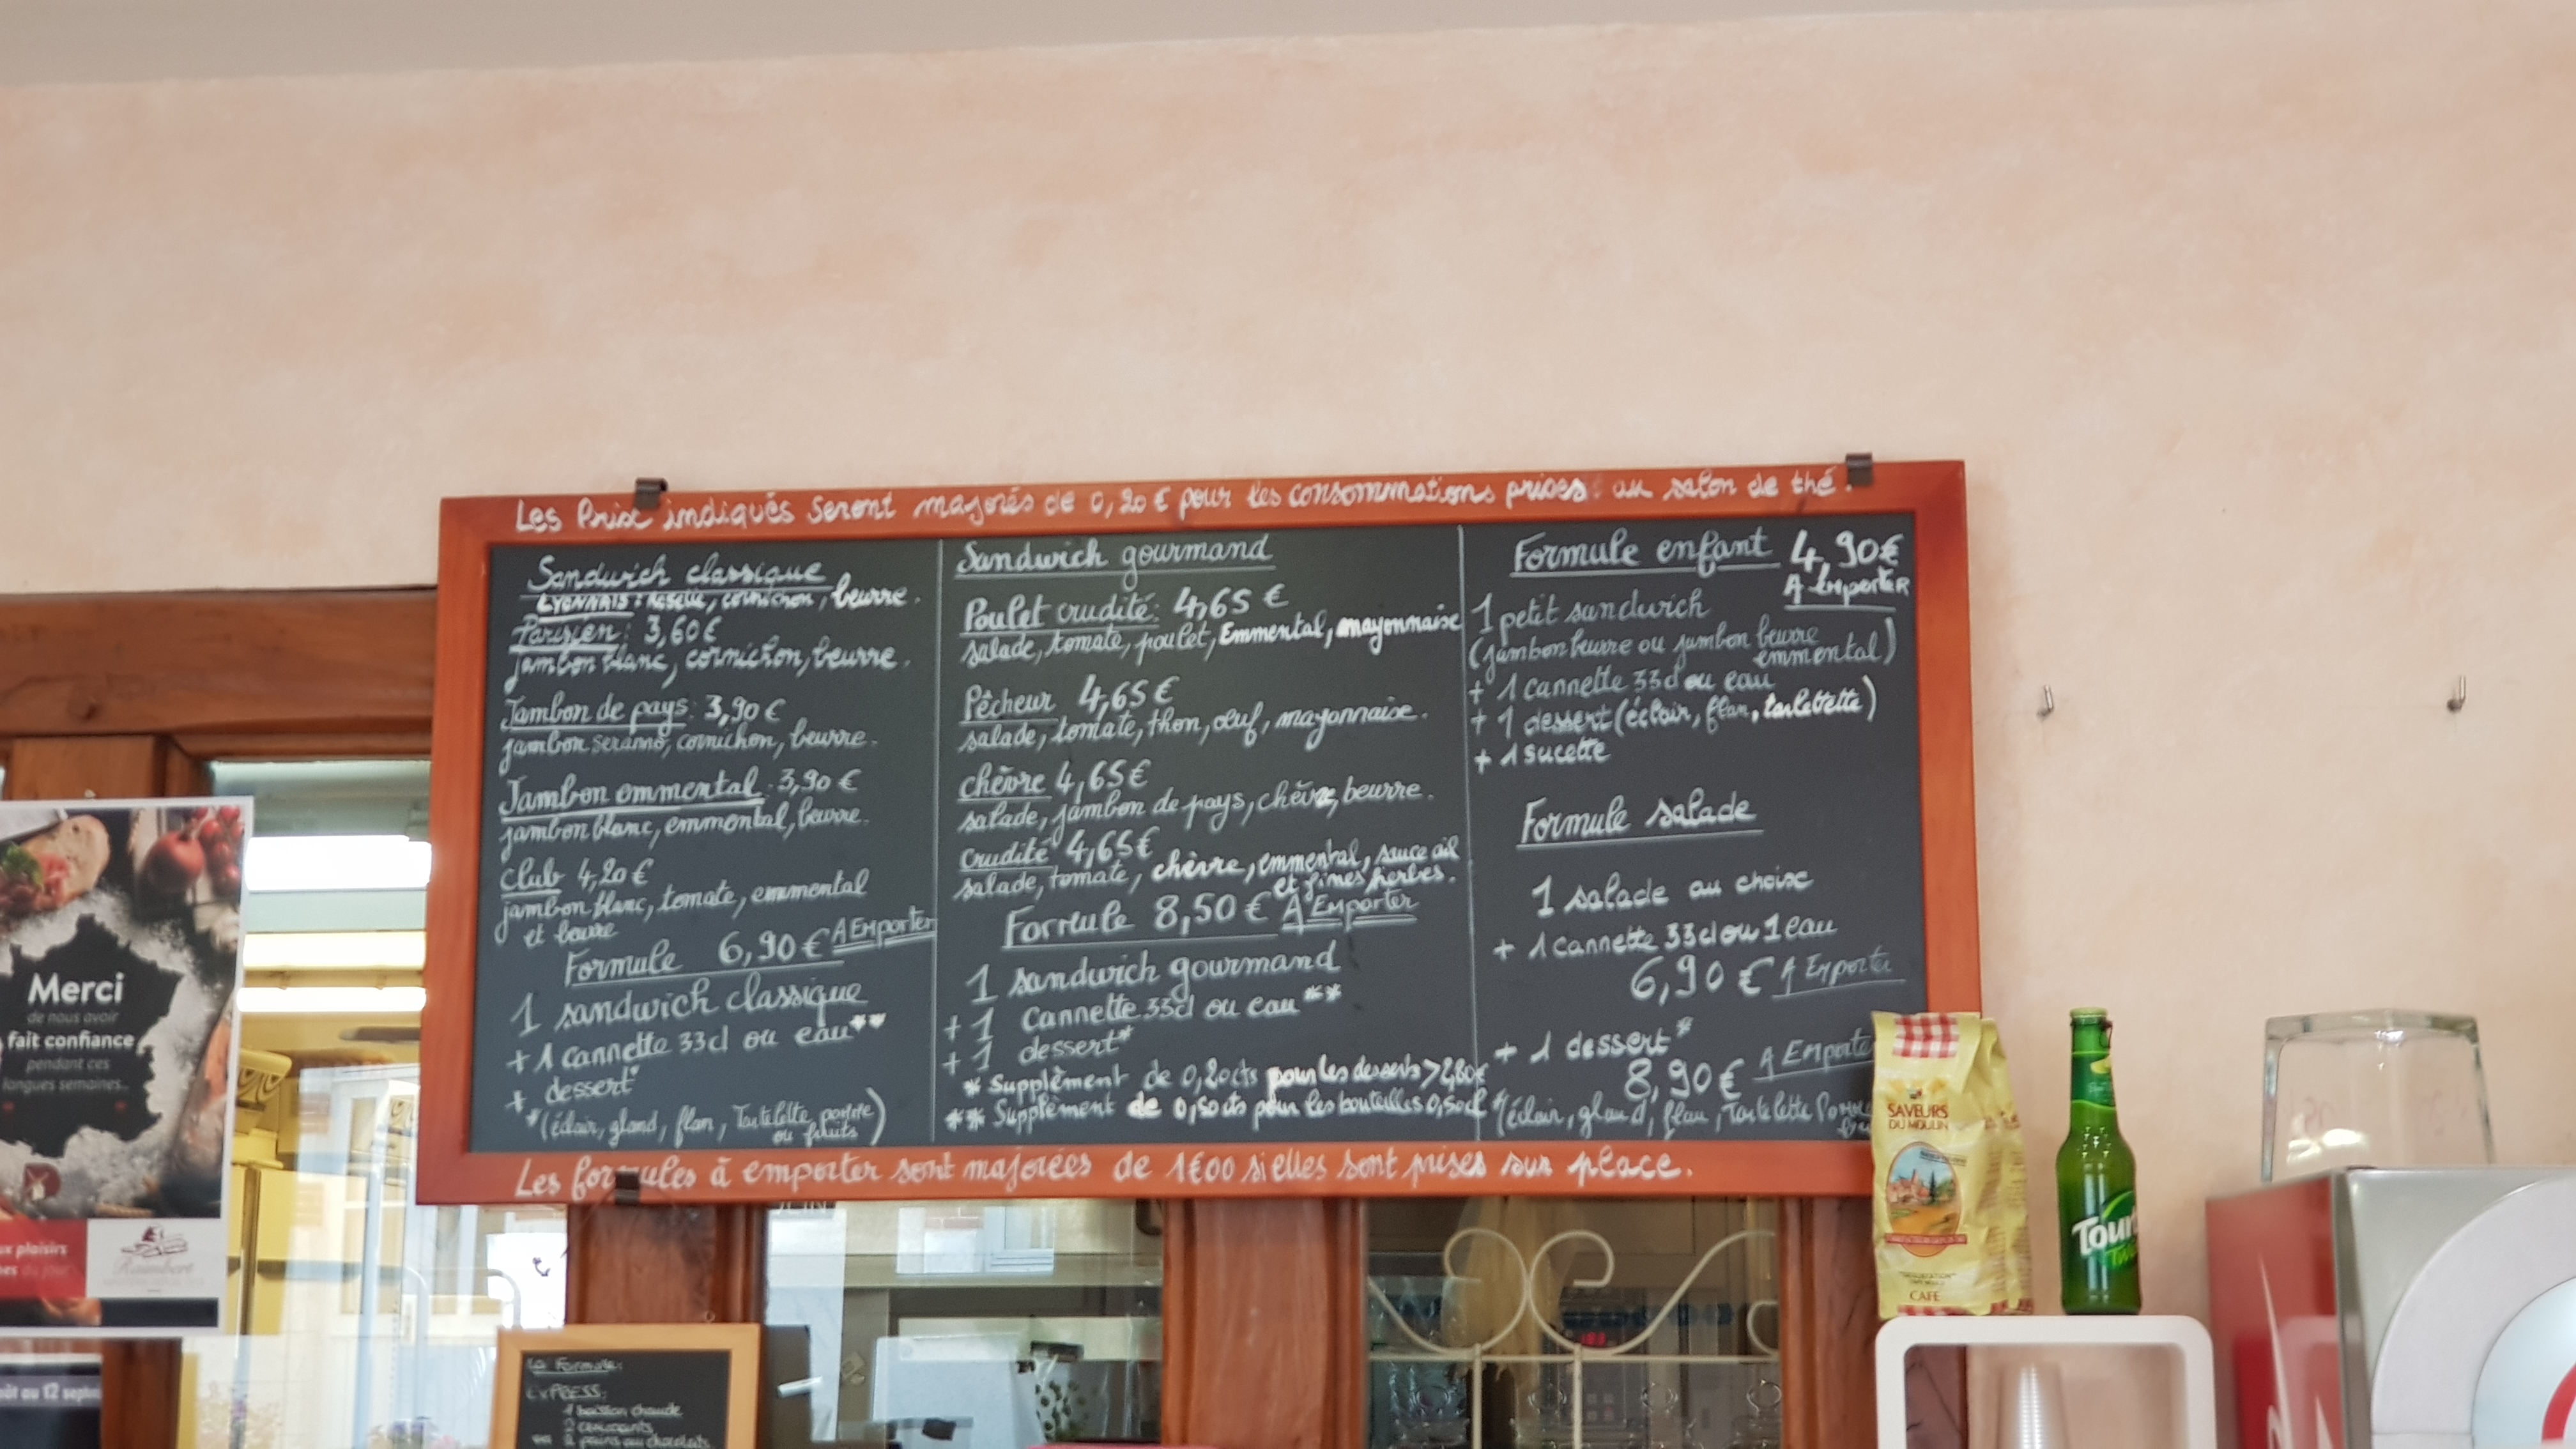 Les Prix indiqués seront majorés de 0,20 € pour les consommations prises au salon de thé.
Sandwich classique
LYONNAIS: rosette, cornichon, beurre.
Parisien: 3,60 €
jambon blanc, cornichon, beurre.
Jambon de pays: 3,90 €
jambon seranno, cornichon, beurre.
Jambon emmental: 3,90 €
jambon blanc, emmental, beurre.
club 4,20 €
jambon blanc, tomate, emmental
et beurre
Formule 6,90 € A Emporter
1 sandwich classique
+ 1 cannette 33cl ou eau**
+ dessert*
*(éclair, gland, flan, Tartelette pomme
ou fruits)
Sandwich gourmand
Poulet crudité: 4,65 €
salade, tomate, poulet, Emmental, mayonnaise
Pêcheur 4,65 €
salade, tomate, thon, œuf, mayonnaise.
chèvre 4,65 €
salade, jambon de pays, chèvre, beurre.
crudité 4,65 €
salade, tomate, chèvre, emmental, sauce ail
et fines herbes.
Formule 8,50 € A Emporter
1 sandwich gourmand
+ 1 cannette 33cl ou eau**
+ 1 dessert*
* Supplément de 0,20cts pour les desserts > 2,80€
** Supplément de 0,50cts pour les bouteilles 0,50cl
Formule enfant 4,90 €
A emporter
1 petit sandwich
(jambon beurre ou jambon beurre
emmental)
+ 1 cannette 33cl ou eau
+ 1 dessert (éclair, flan, tarlettette)
+ 1 sucette
Formule salade
1 salade au choix
+ 1 cannette 33cl ou 1 eau
6,90 € A Emporter
+ 1 dessert*
8,90 € A Emporte
*(éclair, gland, flan, Tartelette Pomme
Les formules à emporter sont majorées de 1€00 si elles sont prises sur place.
Merci
de nous avoir
fait confiance
pendant ces
longues semaines..
ux plaisirs
nes du jour
oût au 12 septe
La Formule:
EXPRESS:
1 boisson chaude
2 croissants
ou 2 pains au chocolats
SAVEURS
DU MOULIN
DÉGUSTATION
CAFÉ
Tour